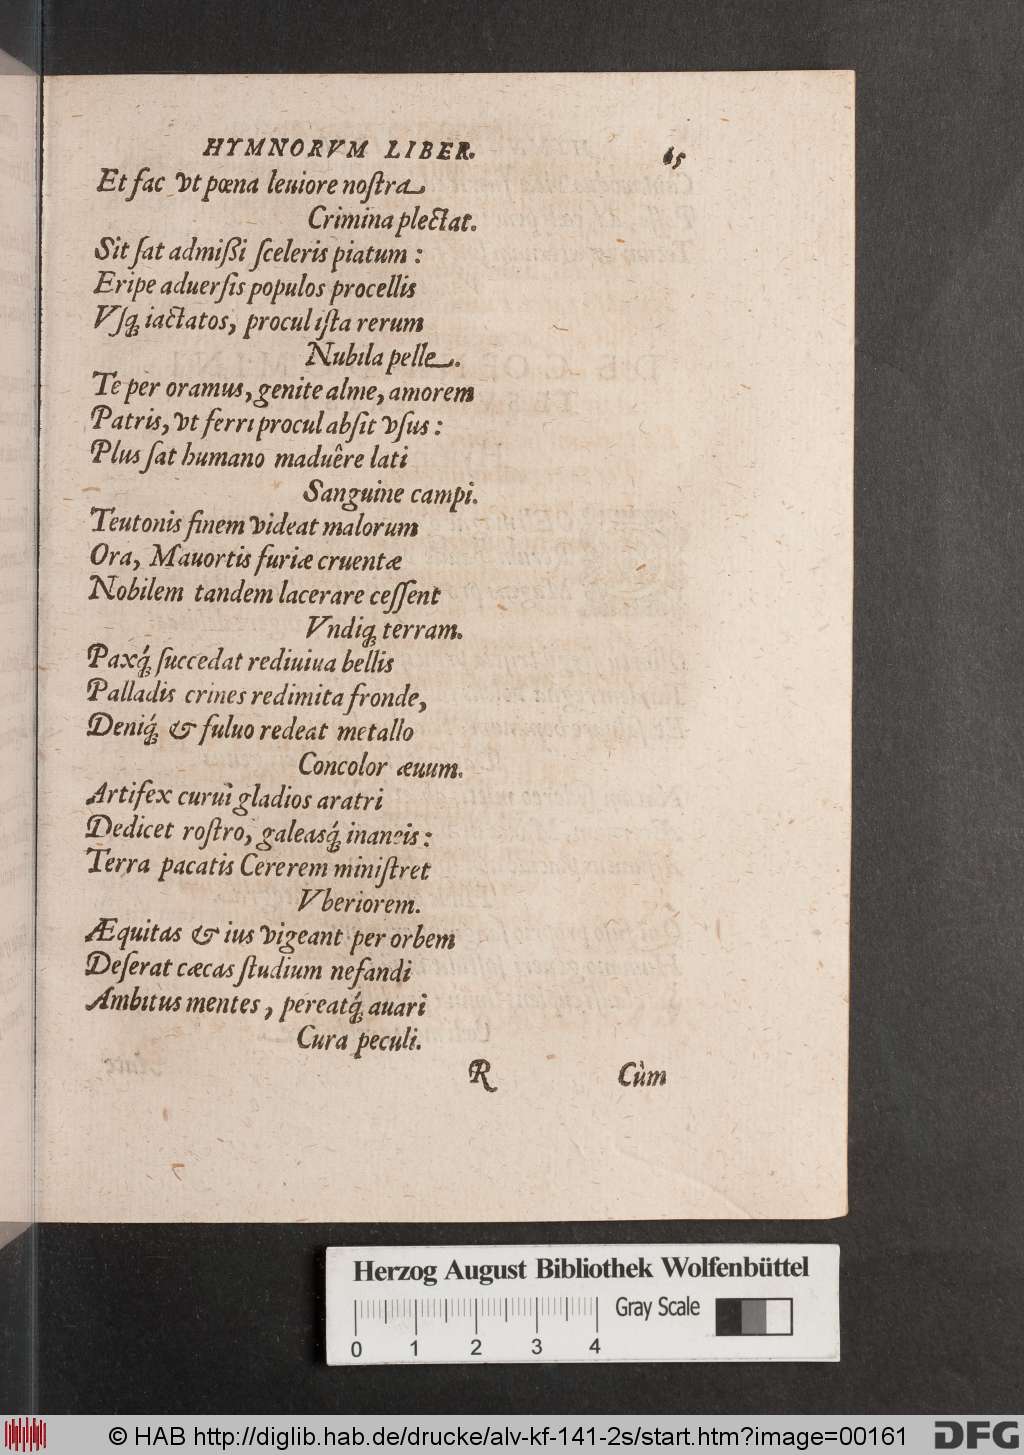 HYMNORVM LIBER. 65
Et fac vt pœna leuiore nostra
Crimina plectat.
Sit sat admißi sceleris piatum :
Eripe aduersis populos procellis
Vsq́ꝫ iactatos, procul ista rerum
Nubila pelle.
Te per oramus, genite alme, amorem
Patris, vt ferri procul absit vsus :
Plus sat humano maduêre lati
Sanguine campi.
Teutonis finem videat malorum
Ora, Mauortis furiæ cruentæ
Nobilem tandem lacerare cessent
Vndiqꝫ terram.
Paxq́ꝫ succedat rediuiua bellis
Palladis crines redimita fronde,
Deniq́ꝫ & fuluo redeat metallo
Concolor æuum.
Artifex curui gladios aratri
Dedicet rostro, galeasq́ꝫ inaneis :
Terra pacatis Cererem ministret
Vberiorem.
Æquitas & ius vigeant per orbem
Deserat cæcas studium nefandi
Ambitus mentes, pereatq́ꝫ auari
Cura peculi.
R Cùm
Herzog August Bibliothek Wolfenbüttel
Gray Scale
0 1 2 3 4
© HAB http://diglib.hab.de/drucke/alv-kf-141-2s/start.htm?image=00161
DFG